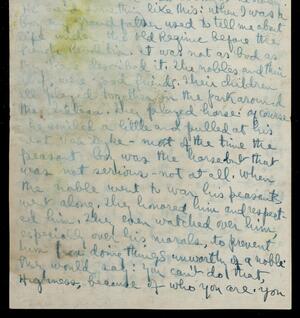 thin like this: when I was
father used to tell me about
life under the old Regime before the
It was not as bad as
described it. The nobles and their
friends. Their children
all played together in the park around
the chateau. They played horse: of course
he smiled a little and pulled at his
he - most of the time the
peasant boy was the horse but that
was not serious - not at all. When
the noble went to war his peasants
went along. They honored him and respect-
ed him. They even watched over him,
especially over his morals, to prevent
him from doing things unworthy of a noble
They would say: you can't do that,
Highness, because of who you are. You